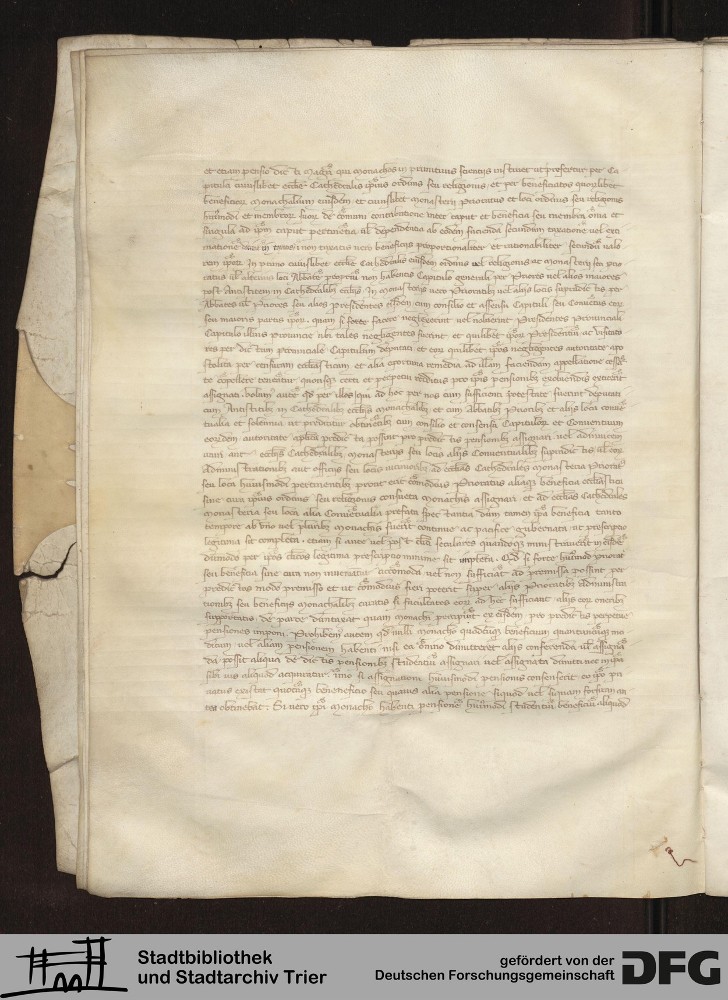 et etiam pensio dicti magistri qui monachos in primitivis scientiis instruet ut profertur per Ca
pitula cuiuslibet ecclesie Cathedralis ipsius ordinis seu religionis et per beneficiatos quoslibet
beneficiorum monachalium eiusdem et cuiuslibet monasterii Prioratus et loci ordinis seu religionis
huiusmodi et membrorum suorum de communi contributione inter caput et beneficia seu membra omnia et
singula ad ipsum caput pertinentia vel dependentia ab eodem facienda secundum taxationem vel exti
mationem in taxatis non taxatis vero beneficiis proportionaliter et rationabiliter secundum valo
rem ipsorum In primo cuiuslibet ecclesie Cathedralis eiusdem ordinis vel religionis ac monasterii seu prio
ratus vel alterius loci Abbatem proprium non habentis Capitulo generali per Priores vel alios maiores
post Antistitem in Cathedralibus ecclesiis In monasteriis vero Prioratibus vel aliis locis supradictis per
Abbates vel Priores seu alios presidentes eisdem cum consilio et assensu Capituli seu Conventus eorum
seu maioris partis ipsorum quam si forte facere neglexerint vel noluerint Presidentes provinciali
Capitulo illius provincie ubi tales negligentes fuerint et quilibet ipsorum Presidentium ac visitato
res per dictum provinciale Capitulum deputati et eorum quilibet ipsos negligentes auctoritate apo
stolica per censuram ecclesiasticam et alia oportuna remedia ad illam faciendam appellatione cessan
te compellere teneantur quousque certi et perpetui redditus pro ipsis pensionibus exolvendis extiterint
assignati volumus autem quod per illos qui ad hoc per nos cum sufficienti potestate fuerint deputati
cum Antistitibus in Cathedralibus ecclesiis monachalibus et cum Abbatibus Prioribus et aliis loca conven
tualia et solennia ut predicitur obtinentibus cum consilio et consensu Capitulorum et Conventuum
eorundem auctoritate apostolica predicta possint pro predictis pensionibus assignari vel admittere
uniri aut ecclesiis Cathedralibus monasteriis seu locis aliis Conventualibus supradictis vel eorum
Administrationibus aut officiis seu locis ad ecclesias Cathedrales monasteria Prioratus
seu loca huiusmodi pertinentibus prout erit commodius Prioratus aliaque beneficia ecclesiastica
sine cura ipsius ordinis seu religionis consueta monachis assignari et ad ecclesias Cathedrales
monasteria seu loca alia Conventualia prefata spectantia dum tamen ipsa beneficia tanto
tempore ab uno vel pluribus monachis fuerint continue ac pacifice gubernata ut prescriptio
legitima sit completa etiam si ante vel post clericos seculares quandoque ministraverint in eisdem
dummodo per ipsos clericos legitima prescriptio minime sit impleta Quod si forte huiusmodi prioratus
seu beneficia sine cura non inveniantur accommoda vel non sufficiant ad premissa possint per
predictos modo premisso et ut commodius fieri poterit super aliis Prioratibus administra
tionibus seu beneficiis monachalibus curatis si facultates eorum ad hec sufficiant aliis eorum oneribus
supportatis de parte duntaxat quam monachi percipiunt ex eisdem pro predictis perpetue
pensiones imponi Prohibemus autem quod nulli monacho quodcumque beneficium quantuncumque mo
dicum vel aliam pensionem habenti nisi ea omnino dimitteret aliis conferenda vel assignan
da possit aliqua de dictis pensionibus studentium assignari vel assignata dimitti nec in ipsa
sibi ius aliquod acquiratur immo si assignationi huiusmodi pensionis consenserit eo ipso pri
vatus existat quocumque beneficio seu quavis alia pensione siquod vel siquam forsitan an
tea obtinebat Si vero ipsi monacho habenti pensionem huiusmodi studentium beneficium aliquod
Stadtbibliothek
und Stadtarchiv Trier
gefördert von der
Deutschen Forschungsgemeinschaft
DFG